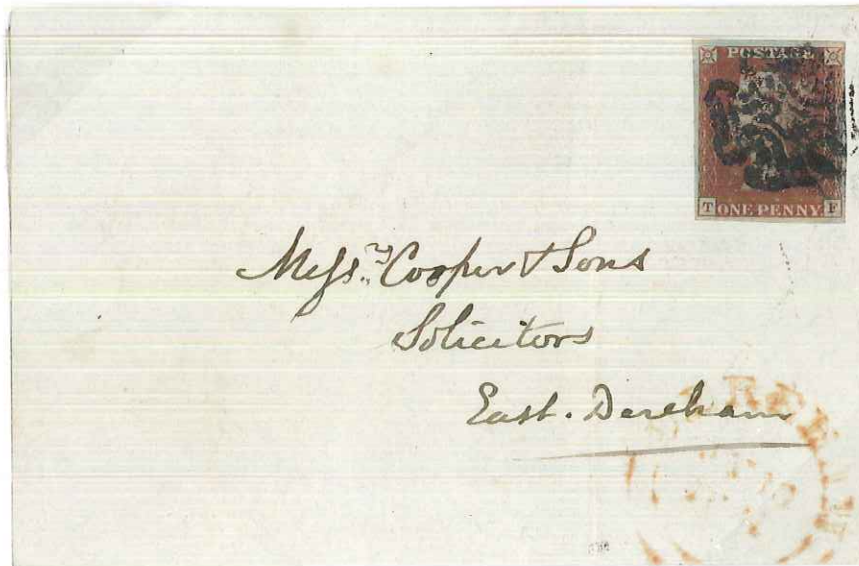 POSTAGE
T ONE PENNY F
Messrs. Cooper & Sons
Solicitors
East. Dereham